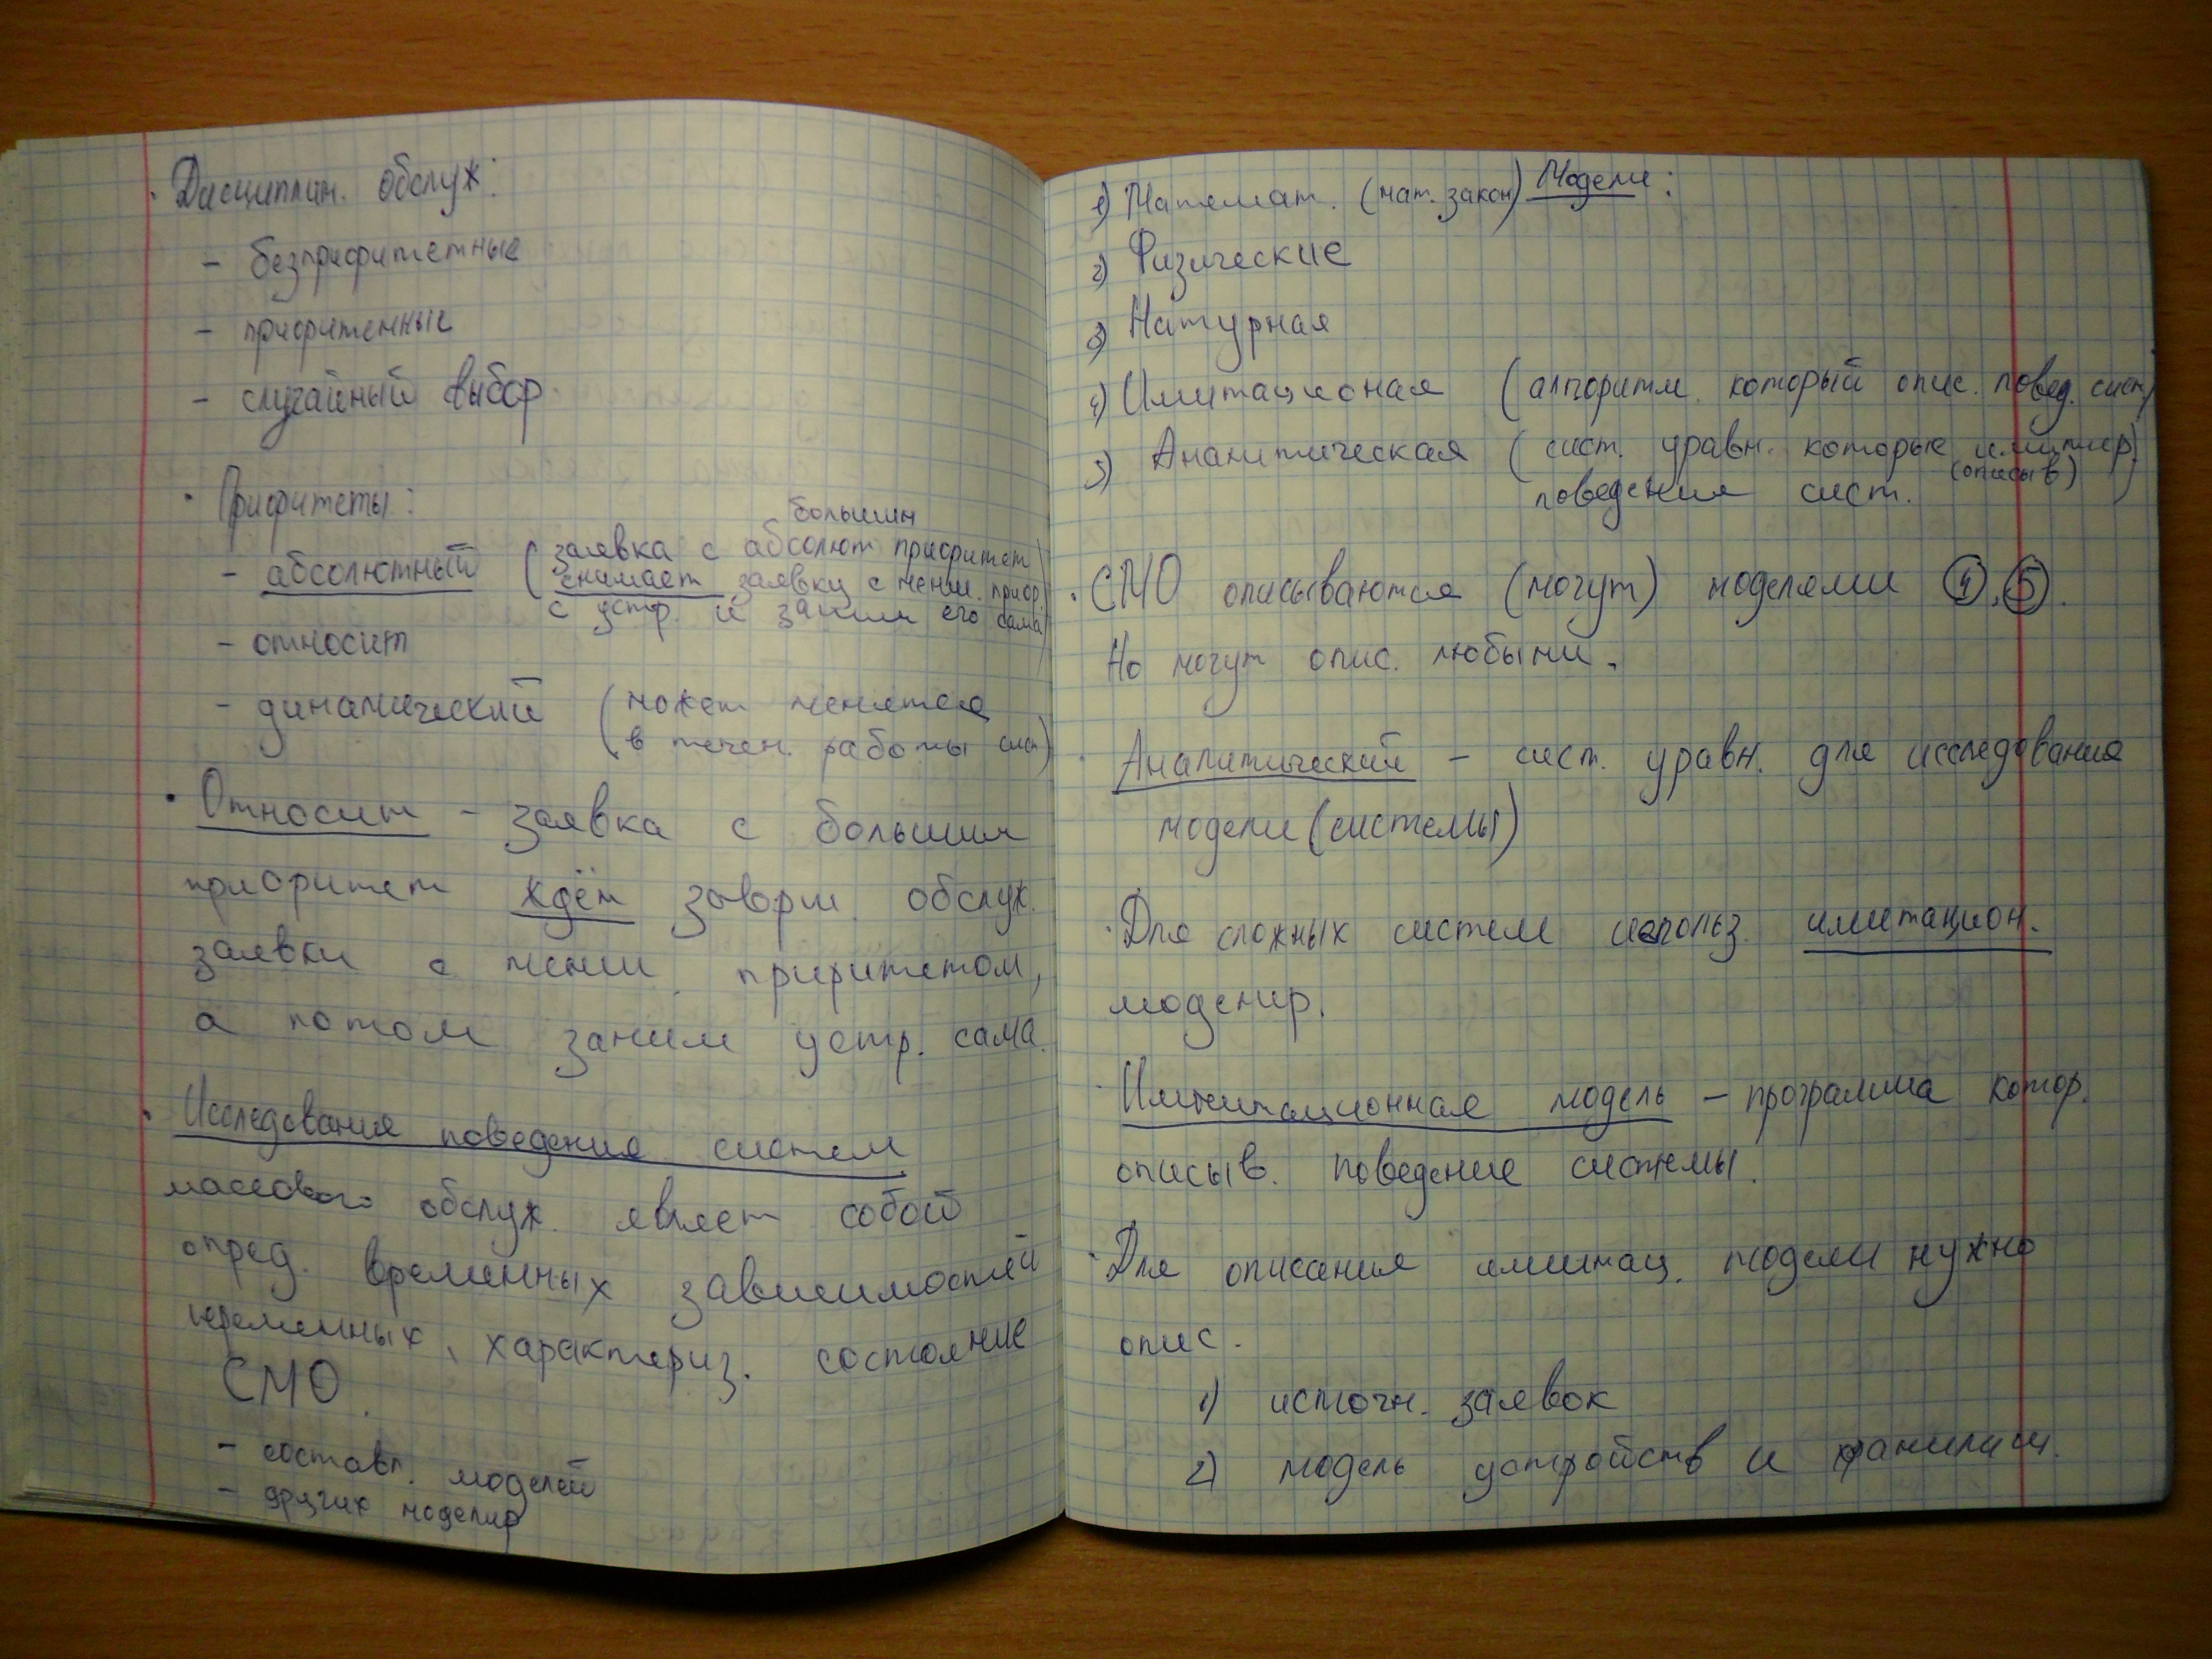 · Дисциплин. обслуж:
- безприоритетные
- приоритенные
- случайный выбор
· Приоритеты:
большим
- абсолютный (заявка с абсолют приоритет
снимает заявку с меньш. приор.
с устр. и заним его сама)
- относит
- динамический (может менятся
в течен. работы сист)
· Относит - заявка с большим
приоритет ждёт заверш. обслуж.
заявки с меньш. приритетом,
а потом заним устр. сама.
· Исследование поведения систем
массового обслуж. являет собой
опред. временных зависимостей
переменных, характериз. состояние
СМО.
- составл. моделей
- других моделир
Модели:
1) Математ. (мат. закон)
2) Физические
3) Натурная
4) Имитационая (алгоритм. который опис. повед. сист)
5) Аналитическая (сист. уравн. которые имитир)
(описыв)
поведения сист.
· СМО описываются (могут) моделями 4, 5.
Но могут опис. любыми.
· Аналитический - сист. уравн. для исследования
модели (системы)
· Для сложных систем использ. имитацион.
моделир.
· Имитационная модель - программа котор.
описыв. поведение системы.
· Для описания имитац. модели нужно
опис.
1) источн. заявок
2) модель устройств и хранилищ.